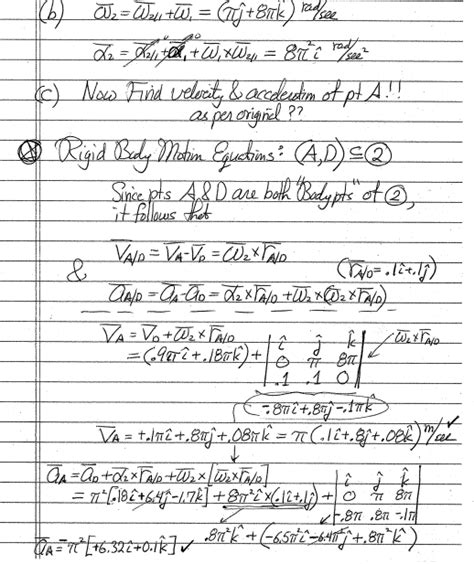 (b) ω̅₂ = ω̅₂/₁ + ω̅₁ = (πĵ + 8πk̂) rad/sec
α̅₂ = α̅₂/₁ + α̅₁ + ω̅₁ × ω̅₂/₁ = 8π² î rad/sec²
(c) Now Find velocity & acceleration of pt A!!
as per original ??
Rigid Body Motion Equations: (A,D) ⊆ ②
Since pts A & D are both "Body pts" of ②,
it follows that
V̅A/D = V̅A - V̅D = ω̅₂ × r̅A/D
& (r̅A/D = .1î + .1ĵ)
a̅A/D = a̅A - a̅D = α̅₂ × r̅A/D + ω̅₂ × (ω̅₂ × r̅A/D)
V̅A = V̅D + ω̅₂ × r̅A/D
= (.9πî + .18πk̂) + | î ĵ k̂ | ω̅₂ × r̅A/D
0 π 8π
.1 .1 0
(-.8πî + .8πĵ - .1πk̂)
V̅A = +.1πî + .8πĵ + .08πk̂ = π(.1î + .8ĵ + .08k̂) m/sec ✓
a̅A = a̅D + α̅₂ × r̅A/D + ω̅₂ × [ω̅₂ × r̅A/D]
= π²[.18î + 6.4ĵ - 1.7k̂] + 8π²î × (.1î + .1ĵ) + | î ĵ k̂ |
0 π 8π
-.8π .8π -.1π
.8π²k̂ + (-6.5π²î - 6.4π²ĵ + .8π²k̂)
a̅A = -π²[+6.32î + 0.1k̂] ✓